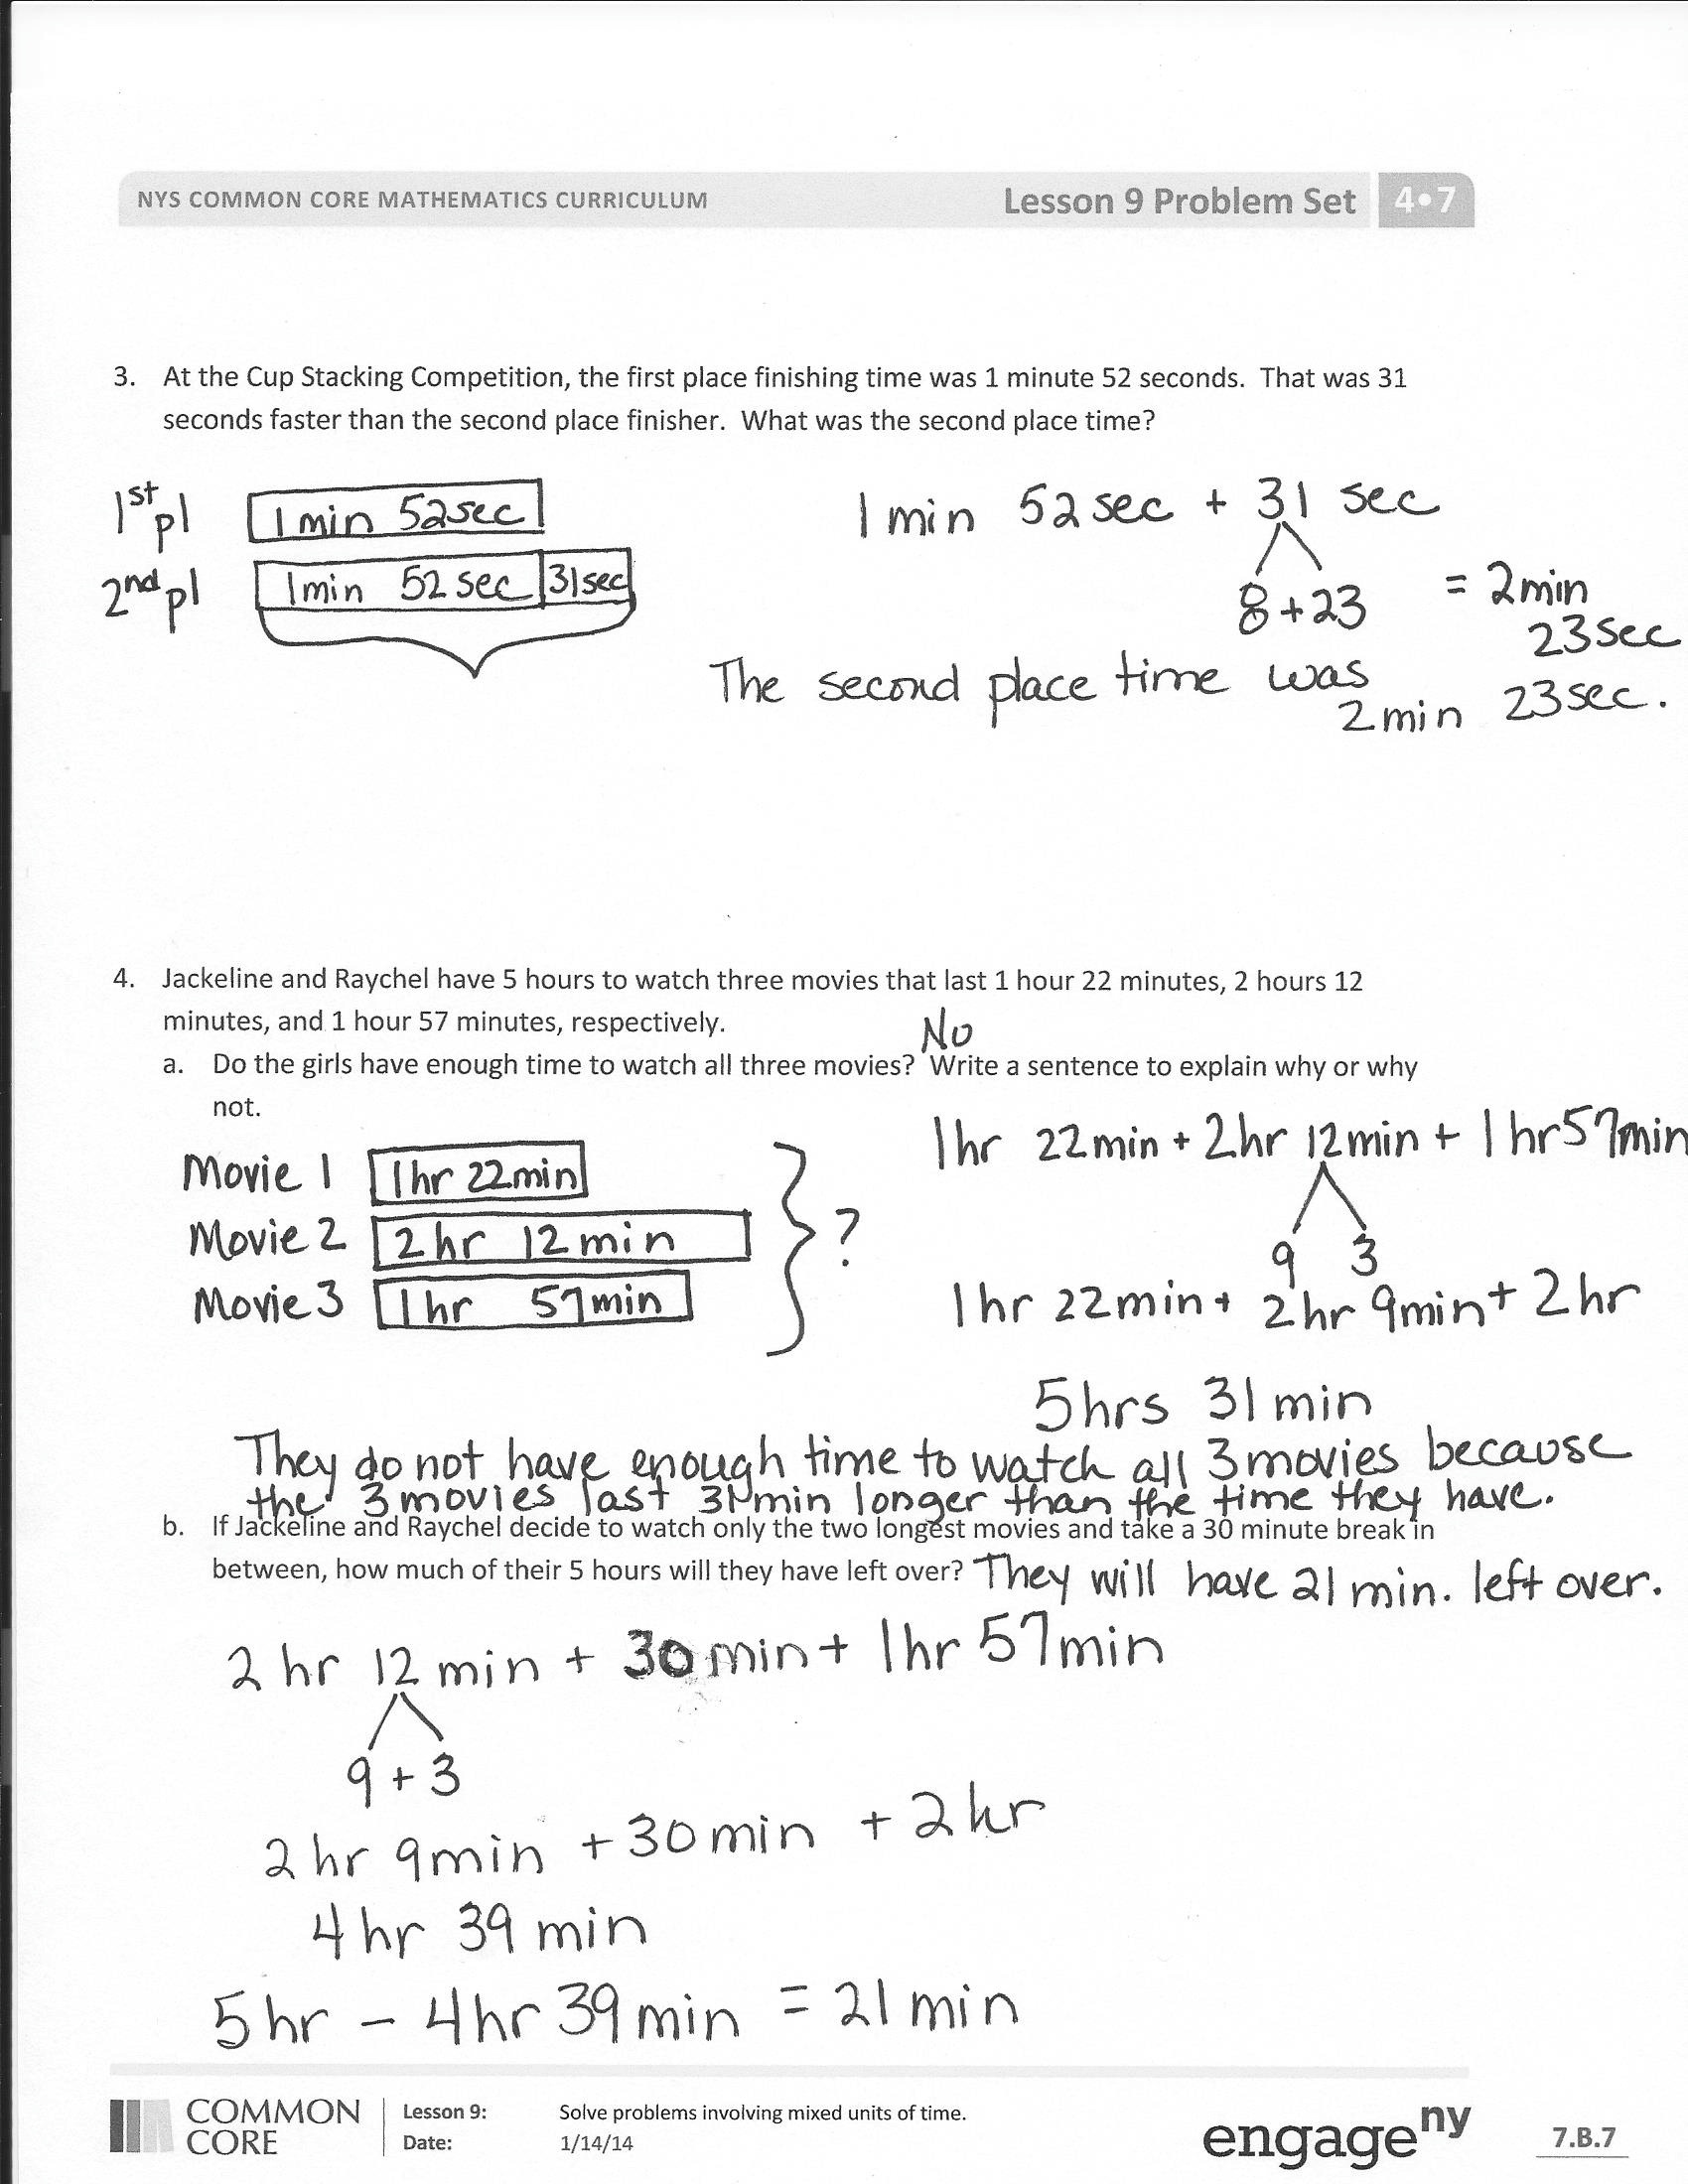 NYS COMMON CORE MATHEMATICS CURRICULUM Lesson 9 Problem Set 4•7
3. At the Cup Stacking Competition, the first place finishing time was 1 minute 52 seconds. That was 31
seconds faster than the second place finisher. What was the second place time?
1st pl 1 min 52 sec
2nd pl 1 min 52 sec 31 sec
1 min 52 sec + 31 sec
8 + 23
= 2 min
23 sec
The second place time was
2 min 23 sec.
4. Jackeline and Raychel have 5 hours to watch three movies that last 1 hour 22 minutes, 2 hours 12
minutes, and 1 hour 57 minutes, respectively.
No
a. Do the girls have enough time to watch all three movies? Write a sentence to explain why or why
not.
Movie 1 1 hr 22 min
Movie 2 2 hr 12 min
Movie 3 1 hr 57 min
?
1 hr 22 min + 2 hr 12 min + 1 hr 57 min
9 3
1 hr 22 min + 2 hr 9 min + 2 hr
5 hrs 31 min
They do not have enough time to watch all 3 movies because
the 3 movies last 31 min longer than the time they have.
b. If Jackeline and Raychel decide to watch only the two longest movies and take a 30 minute break in
between, how much of their 5 hours will they have left over? They will have 21 min. left over.
2 hr 12 min + 30 min + 1 hr 57 min
9 + 3
2 hr 9 min + 30 min + 2 hr
4 hr 39 min
5 hr - 4 hr 39 min = 21 min
COMMON
CORE
Lesson 9: Solve problems involving mixed units of time.
Date: 1/14/14
engage ny
7.B.7